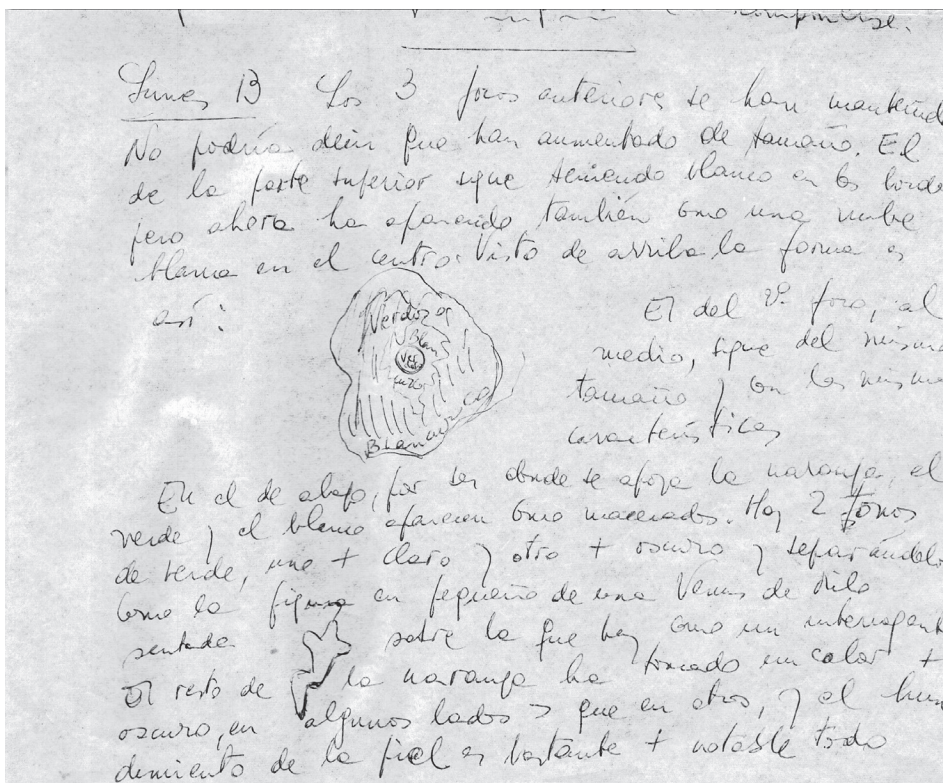 comprimirse.
Lunes 13 Los 3 focos anteriores se han mantenido
No podría decir que han aumentado de tamaño. El
de la parte superior sigue teniendo blanco en los borde
pero ahora ha aparecido también como una nube
blanca en el centro. Visto de arriba la forma es
así:
Verdoza
Blan
Ver
Blancuzca
El del 2º foco, al
medio, sigue del mismo
tamaño y con las mismas
características
En el de abajo, por ser donde se apoya la naranja, el
verde y el blanco aparecen como macerados. Hay 2 tonos
de verde, uno + claro y otro + oscuro y separándolo
como la figura en pequeño de una Venus de Milo
sentada sobre la que hay como un interrogante
El resto de la naranja ha tomado un color +
oscuro, en algunos lados > que en otros, y el hun
dimiento de la piel es bastante + notable todo